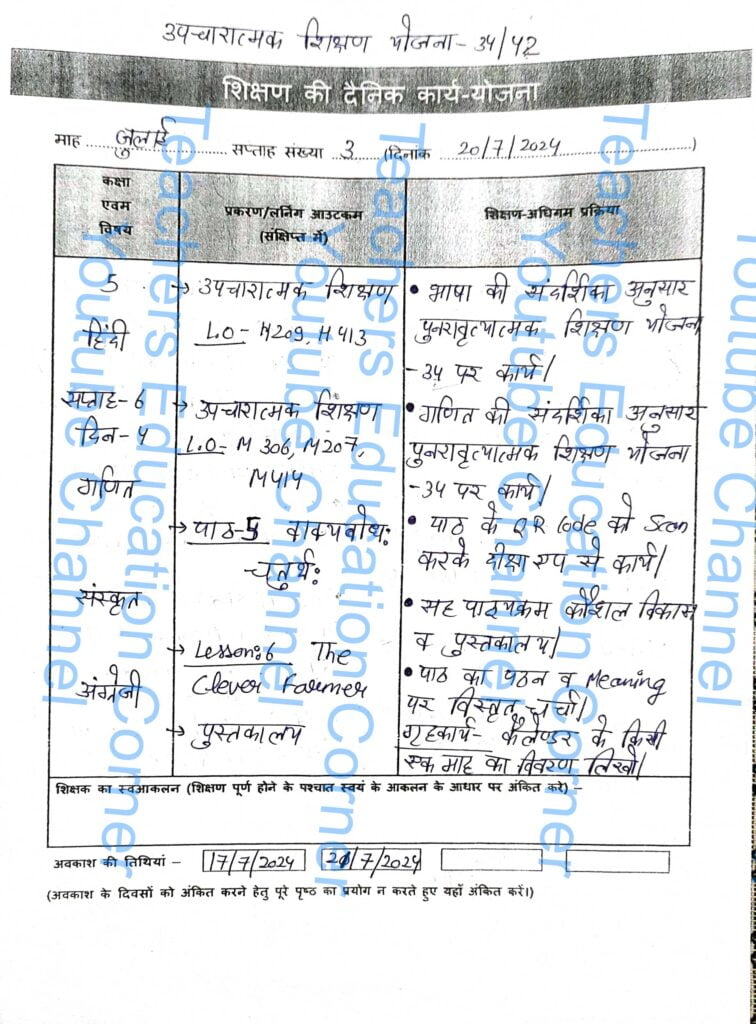 उपचारात्मक शिक्षण योजना - 34/42
शिक्षण की दैनिक कार्य-योजना
माह जुलाई सप्ताह संख्या 3 (दिनांक 20/7/2024)
कक्षा
एवम
विषय
प्रकरण/लर्निंग आउटकम
(संक्षिप्त में)
शिक्षण-अधिगम प्रक्रिया
5
हिंदी
सप्ताह-6
दिन-4
गणित
संस्कृत
अंग्रेजी
→ उपचारात्मक शिक्षण
L.O - H209, H413
→ उपचारात्मक शिक्षण
L.O- M 306, M207,
M414
→ पाठ-5 वाक्यबोध:
चतुर्थ:
→ Lesson:6 The
Clever Farmer
→ पुस्तकालय
• भाषा की संदर्शिका अनुसार
पुनरावृत्यात्मक शिक्षण योजना
-34 पर कार्य।
• गणित की संदर्शिका अनुसार
पुनरावृत्यात्मक शिक्षण योजना
-34 पर कार्य।
• पाठ के QR Code को Scan
करके दीक्षा एप से कार्य।
• सह पाठ्यक्रम कौशल विकास
व पुस्तकालय।
• पाठ का पठन व Meaning
पर विस्तृत चर्चा।
गृहकार्य- कैलेण्डर के किसी
एक माह का विवरण लिखो।
शिक्षक का स्वआकलन (शिक्षण पूर्ण होने के पश्चात स्वयं के आकलन के आधार पर अंकित करे) –
अवकाश की तिथियां – 17/7/2024 21/7/2024
(अवकाश के दिवसों को अंकित करने हेतु पूरे पृष्ठ का प्रयोग न करते हुए यहाँ अंकित करें।)
Teachers Education Corner
Youtube Channel
Teachers Education Corner
Youtube Channel
Teachers Education Corner
Youtube Channel